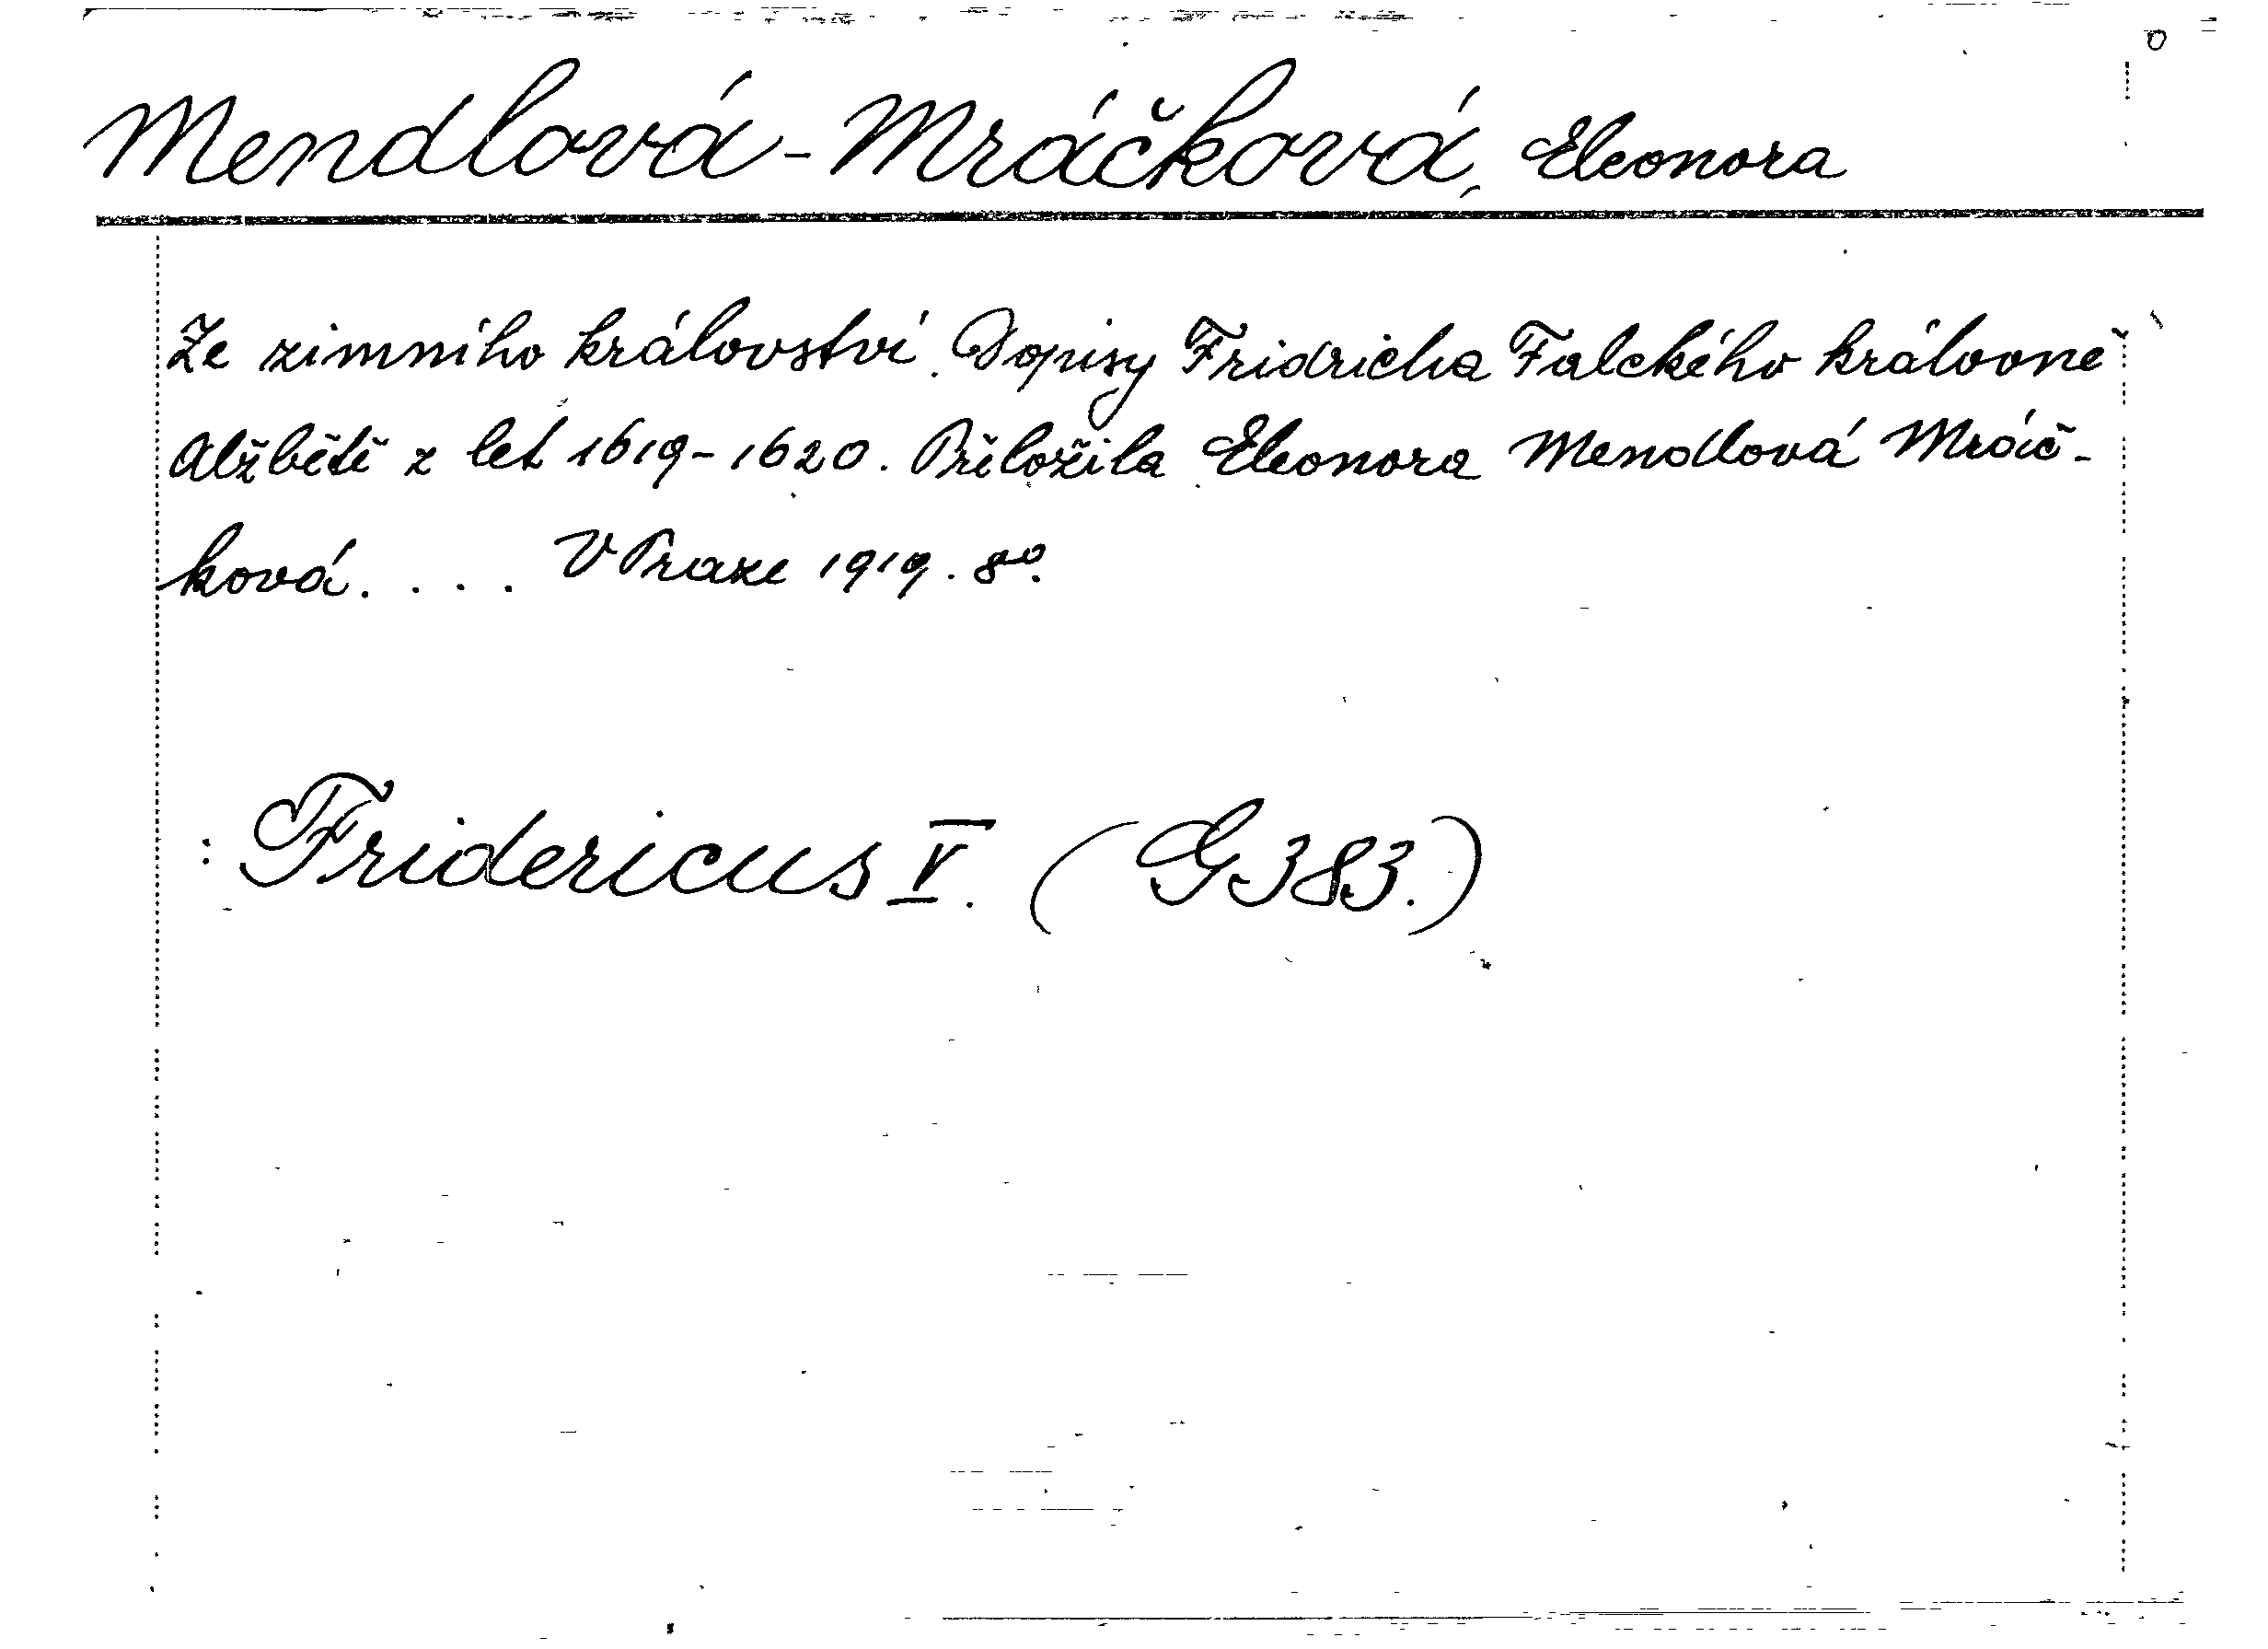 Mendlová-Mráčková, Eleonora
Ze zimního království. Dopisy Fridricha Falckého královně
Alžbětě z let 1619-1620. Přeložila Eleonora Mendlová Mráč-
ková. . . . V Praze 1919. 8º.
: Fridericus V. (G 383.)